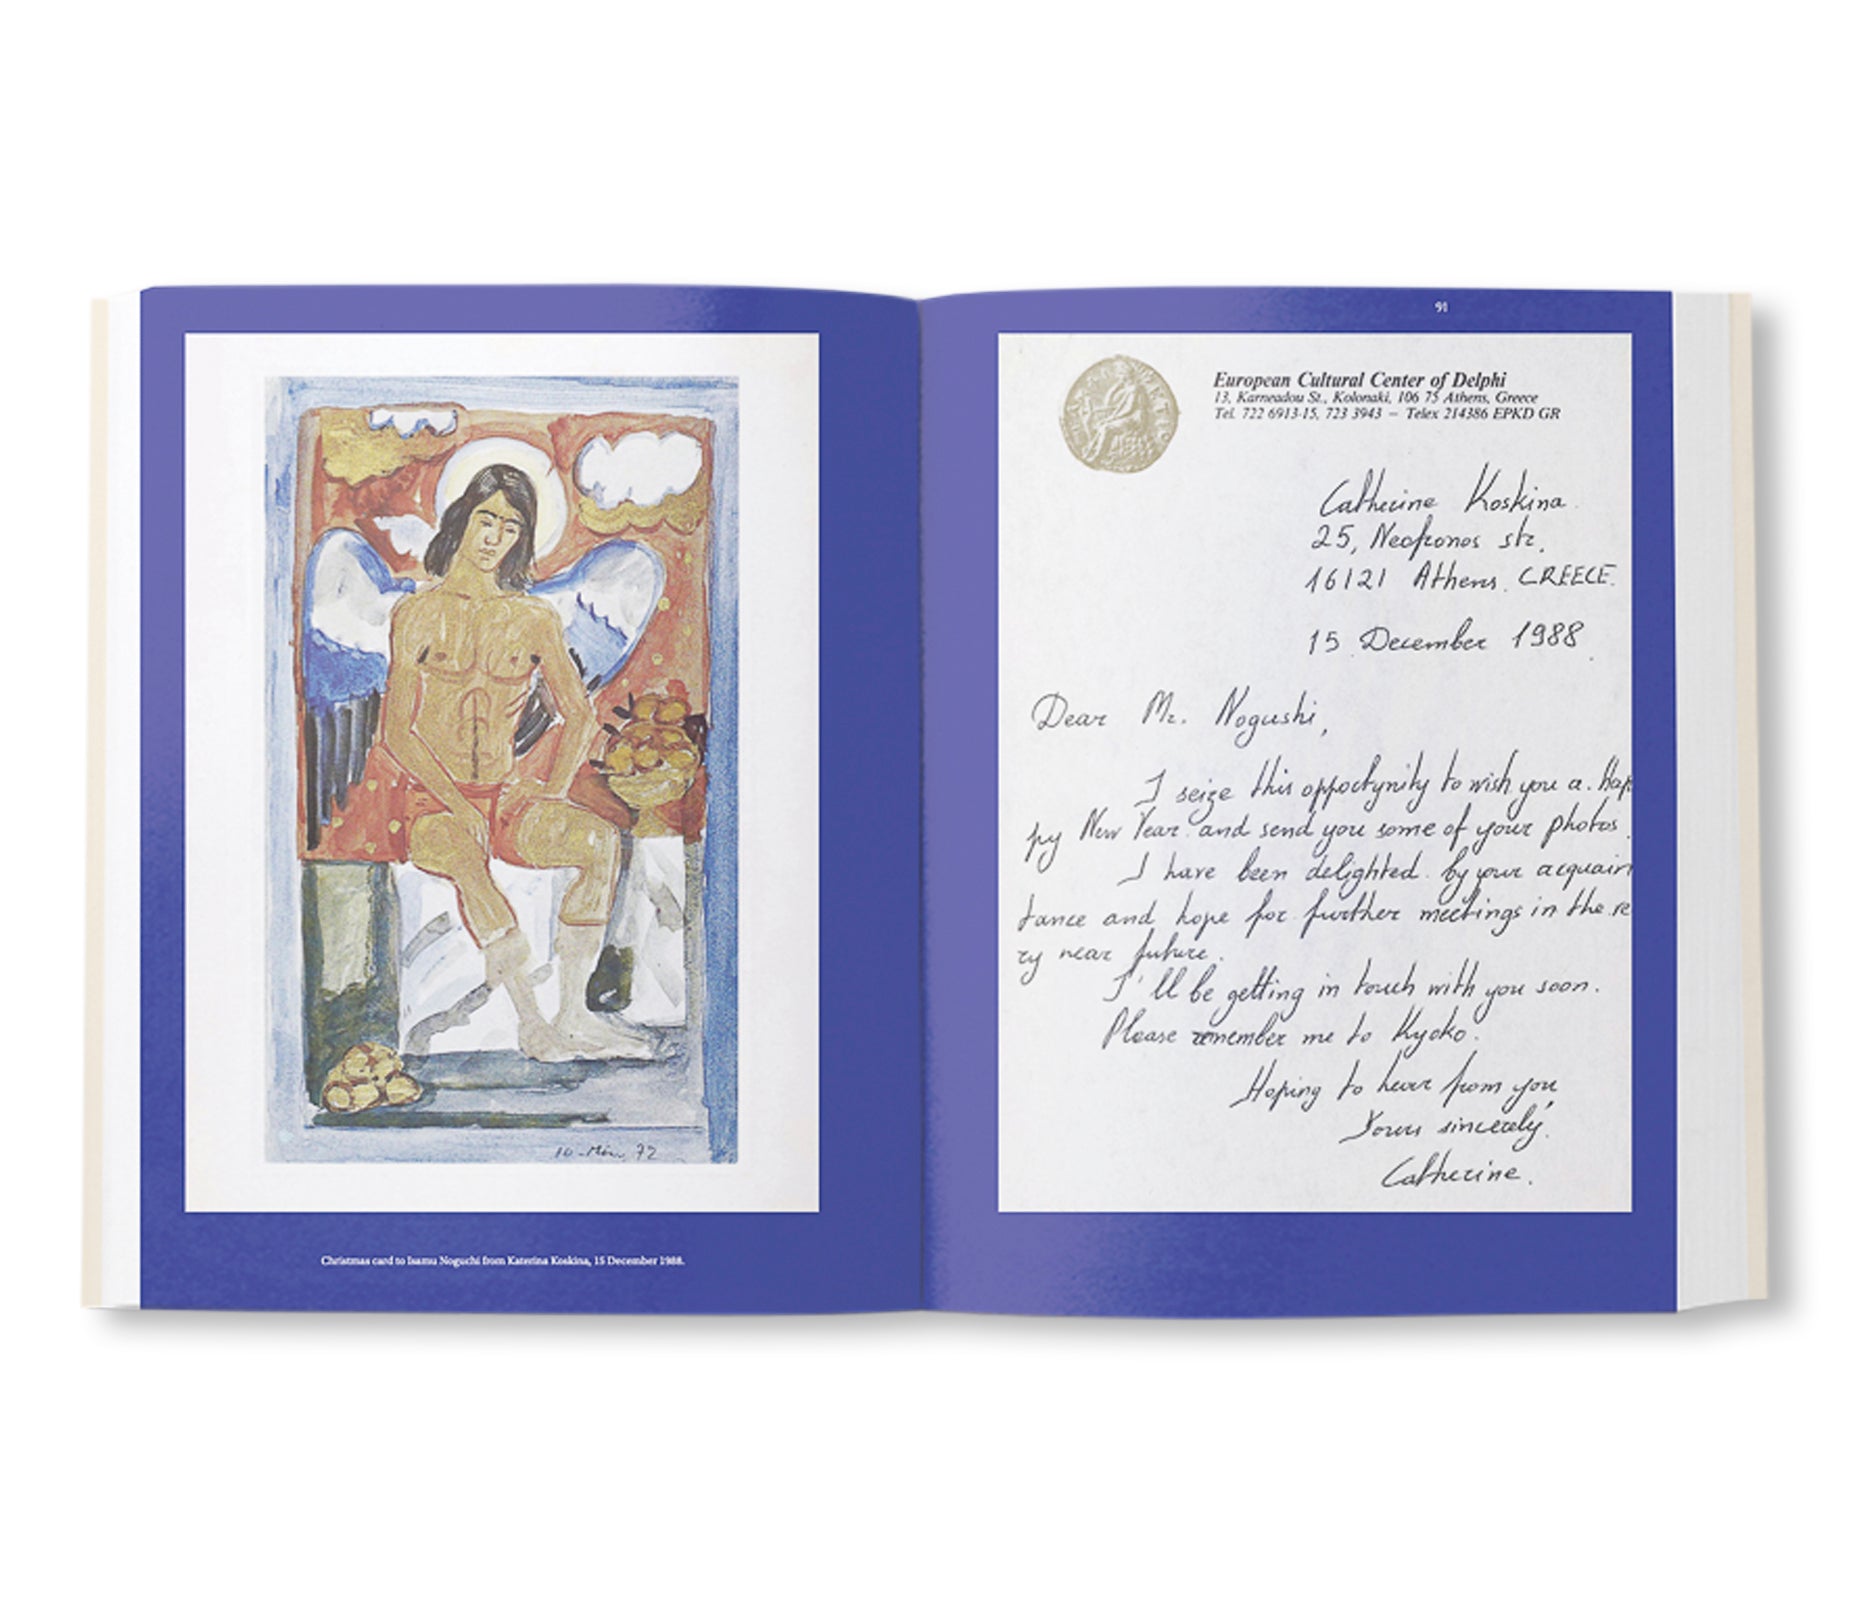 10 Μάιν 72
Christmas card to Isamu Noguchi from Katerina Koskina, 15 December 1988.
91
European Cultural Center of Delphi
13, Karneadou St., Kolonaki, 106 75 Athens, Greece
Tel. 722 6913-15, 723 3943 – Telex 214386 EPKD GR
Catherine Koskina
25, Neofronos str.
16121 Athens. GREECE.
15 December 1988.
Dear Mr. Nogushi,
I seize this opportynity to wish you a Hap
py New Year and send you some of your photos.
I have been delighted by your acquain
tance and hope for further meetings in the ve
ry near future.
I'll be getting in touch with you soon.
Please remember me to Kyoko.
Hoping to hear from you,
Yours sincerely,
Catherine.